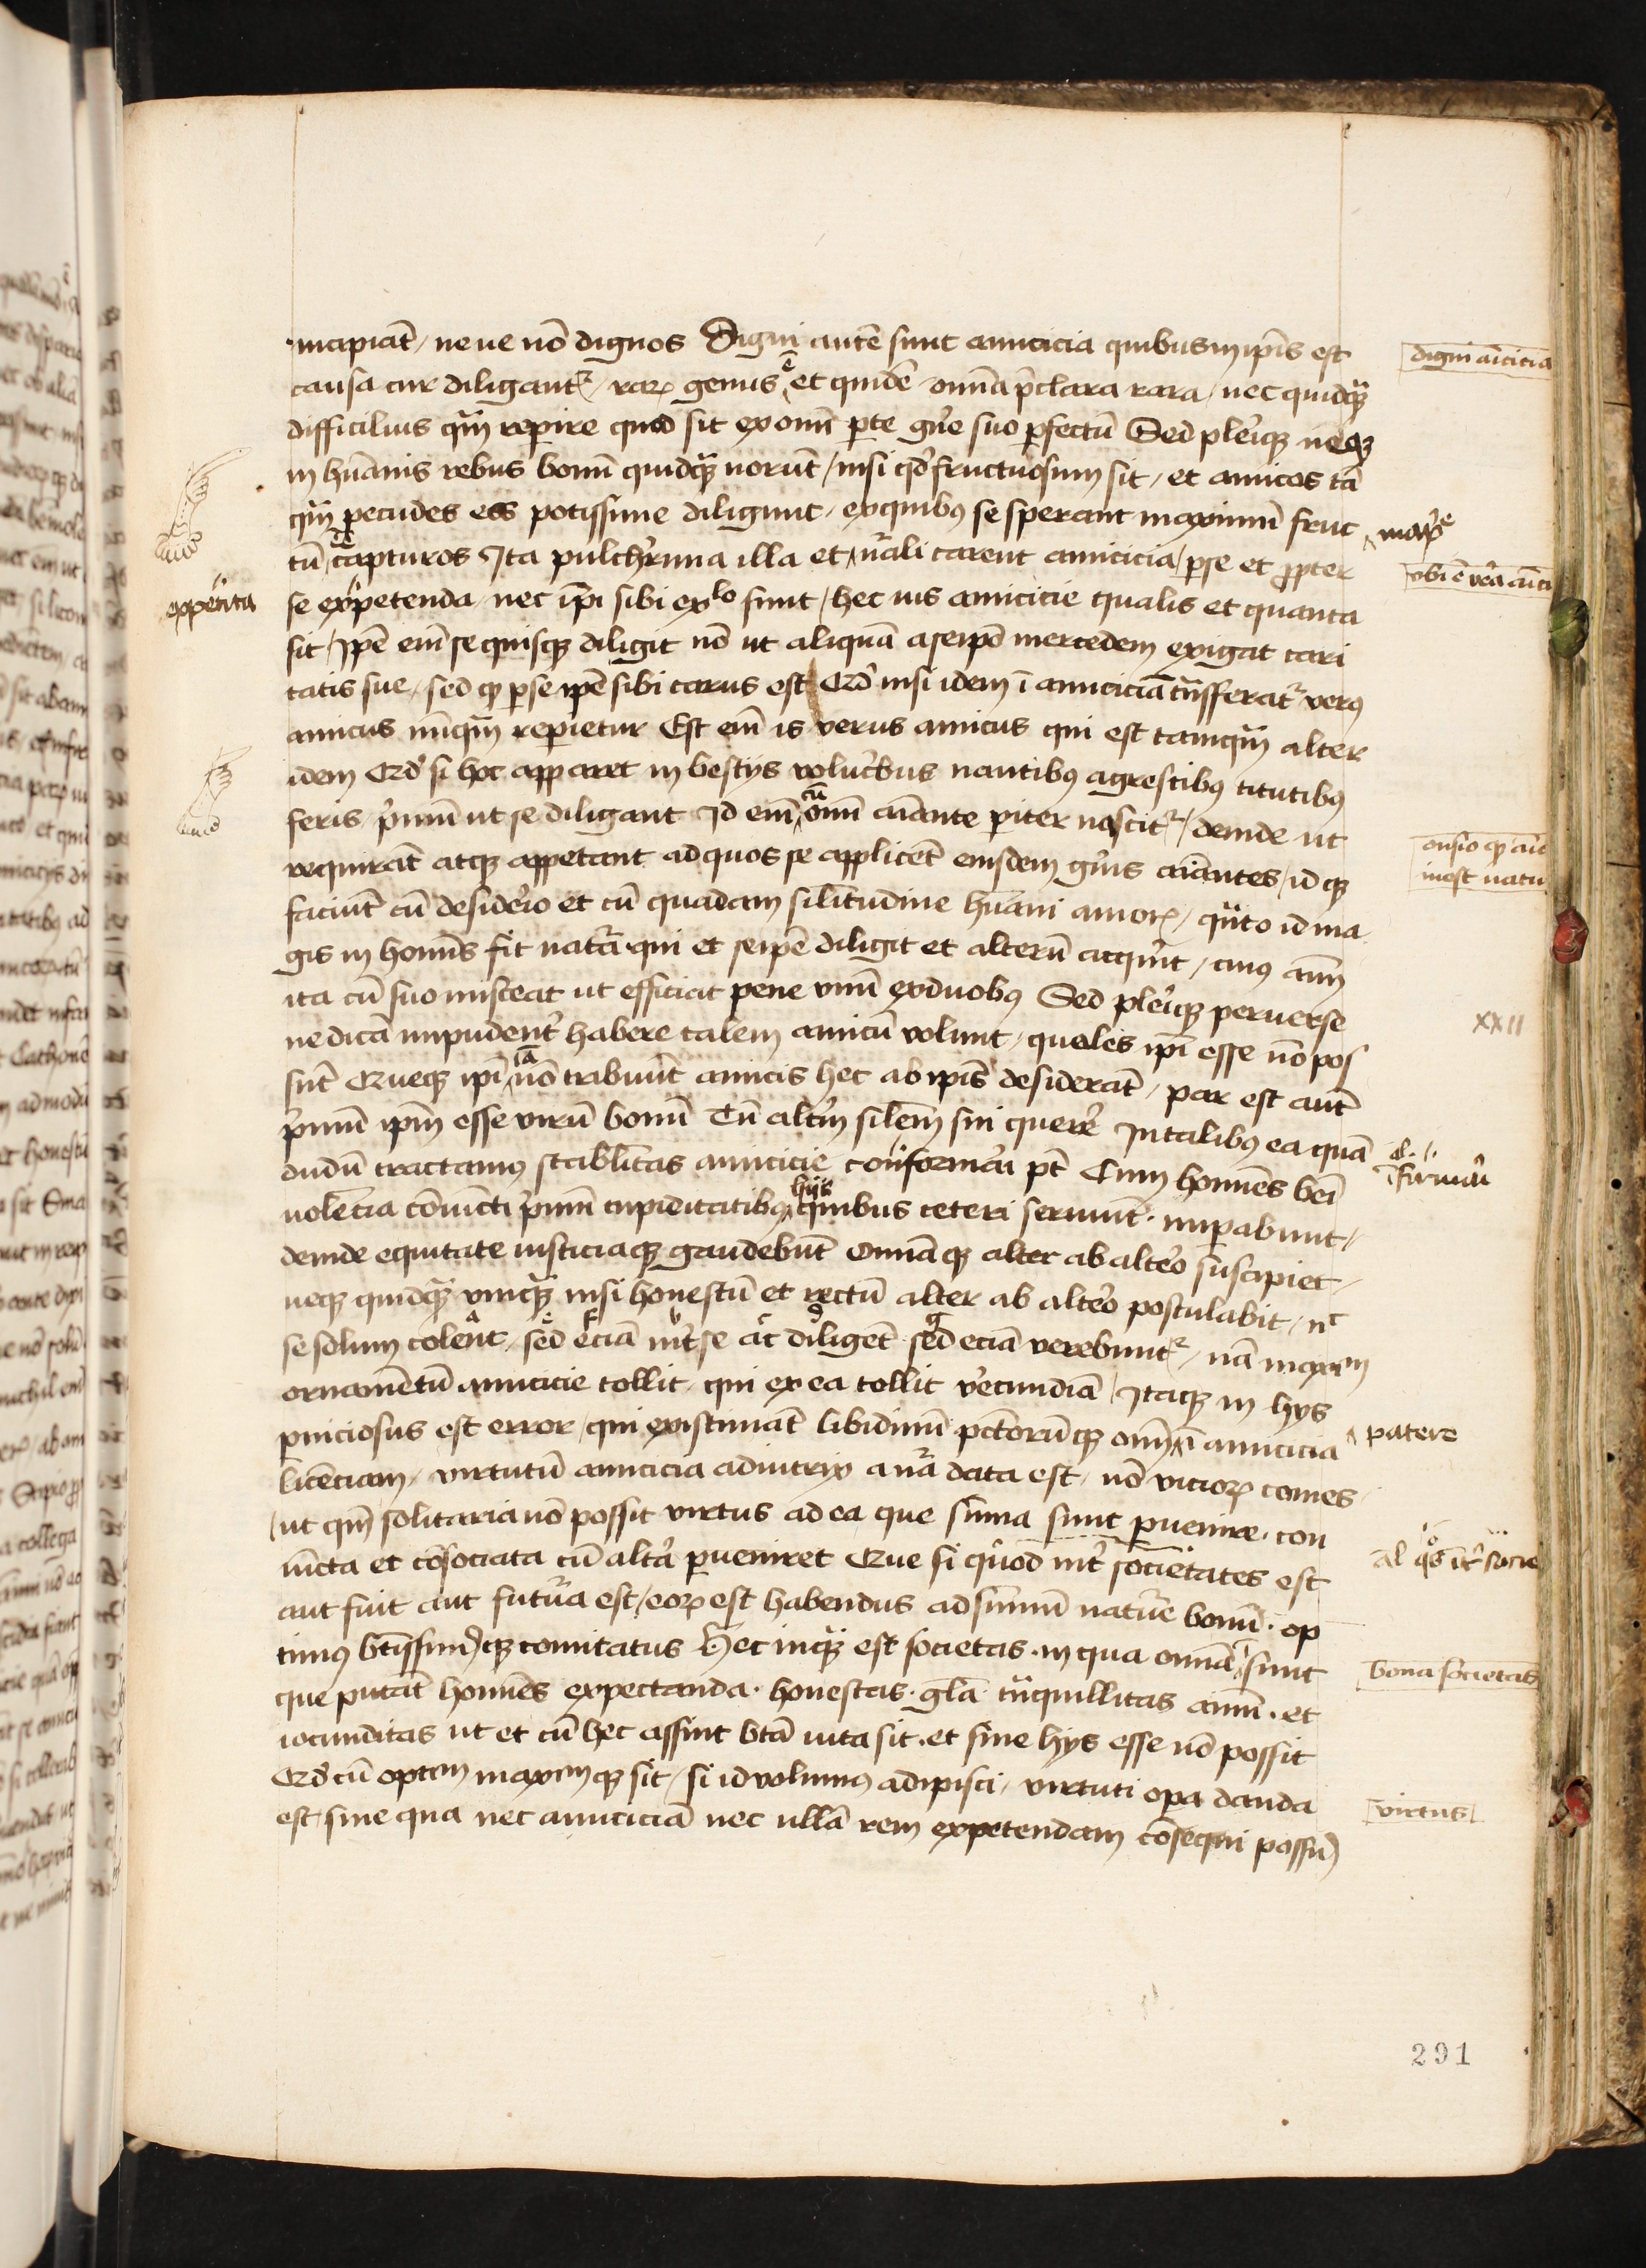 incipiāt / neue nō dignos Digni autē sunt amicicia quibus in ip̄is est
causa cur diligantᷣ / raꝝ genus ē et quidē omnīa p̄clara rara / nec quidq̄ꝫ
difficilius q̄m̄ reperire quod sit ex omni ꝑte gn̄e suo ꝑfectū Sed pleriqꝫ neqꝫ
in hūanis rebus bonū quidq̄ꝫ norūt / nisi qd̄ fructuosum sit / et amicos tā
q̄m̄ pecudes eos potissime diligunt / ex quibꝰ se sperant maximū fruc
tū capturos Ita pulch̓rima illa et nr̄ali carent amicicia / ꝑ se et ꝓpter
se expetenda / nec ip̄i sibi exlo sunt / hec uis amicicie qualis et quanta
sit / Ip̄e em̄ se quisqꝫ diligit nō ut aliquā a seip̄o mercedem exigat cari
tatis sue / sed ꝙ ꝑ se ip̄e sibi carus est Qd̓ nisi idem ī amiciciā trāsferatᷣ verꝰ
amicus nūq̄m̄ reperietur Est em̄ is verus amicus qui est tamq̄m̄ alter
idem Qd̓ si hoc apparet in bestijs volucribus nantibꝰ agrestibꝰ titutibꝰ
feris / p̓mū ut se diligant Id em̄ cū om̄i aīante pariter nascitᷣ / deinde ut
requirāt atqꝫ appetant ad quos se applicēt eiusdem gn̄is aīantes / id qꝫ
faciūt cū desiderio et cū quadam sīlitudine hūani amoꝝ / q̄nto id ma
gis in hōmis fit nat̄a qui et seip̄e diligit et alterū acquirit / cuiꝰ aīm
ita cū suo misceat ut efficiat pene vnū ex duobꝰ Sed pleriqꝫ peruerse
ne dicā impudent̓ habere talem amicū volunt / quales ip̄i esse nō pos
sūt Queqꝫ ip̄i nō tribuūt amicis hec ab ip̄is desiderāt / par est autē
p̓mū ip̄m esse virū bonū Tū altm̄ silem̄ sui quere̓ In talibꝰ ea quā
dudū tractamꝰ stabilitas amicicie confirmari pt̄ Cum homines beī
uolēcia cōiuncti p̓mū cupiditatibꝰ hijs quibus ceteri seruiunt · impabunt /
deinde equitate iusticiaqꝫ gaudebūt Omnīaqꝫ alter ab alt̓o suscipiet /
neqꝫ quidq̄ꝫ vnq̄ꝫ nisi honestū et rectū alter ab alt̓o postulabit / nc
se solum colent / sed eciā int̓ se ac diligēt sed eciā verebuntᷣ / nā maxim
ornamētū amicicie tollit / qui ex ea tollit v̓ecundiā / Itaqꝫ in hijs
ꝑniciosus est error / qui existimāt libidinū pctōrūqꝫ om̄ ī amicicia
licenciam / virtutū amicicia adiutrix a nr̄a data est / nō vicioꝝ comes
/ ut qm̄ solitaria nō possit virtus ad ea que sūma sunt ꝑuenire · con
iūcta et cōsociata cū alt̓a ꝑueniret Que si quod int̓ societates est
aut fuit aut futura est / eoꝝ est habendus ad sūmū nature bonū · op
timꝰ btissimꝰqꝫ comitatus Hec inq̄ꝫ est societas · in qua omnīa sunt
que putāt homines expectanda · honestas · gl̄a trāquillitas animi · et
iocunditas ut et cū hec assint bt̄a uita sit · et sine hijs esse nō possit
Qd̓ cū optim maximqꝫ sit / si id volumꝰ adipisci / virtuti opa danda
est / sine qua nec amiciciā nec ullā rem expetendam cōsequi possumꝰ
digni aīcicia
vbi ē v̓a aīci
appetita
XXII
patere
bona societas
virtus
291